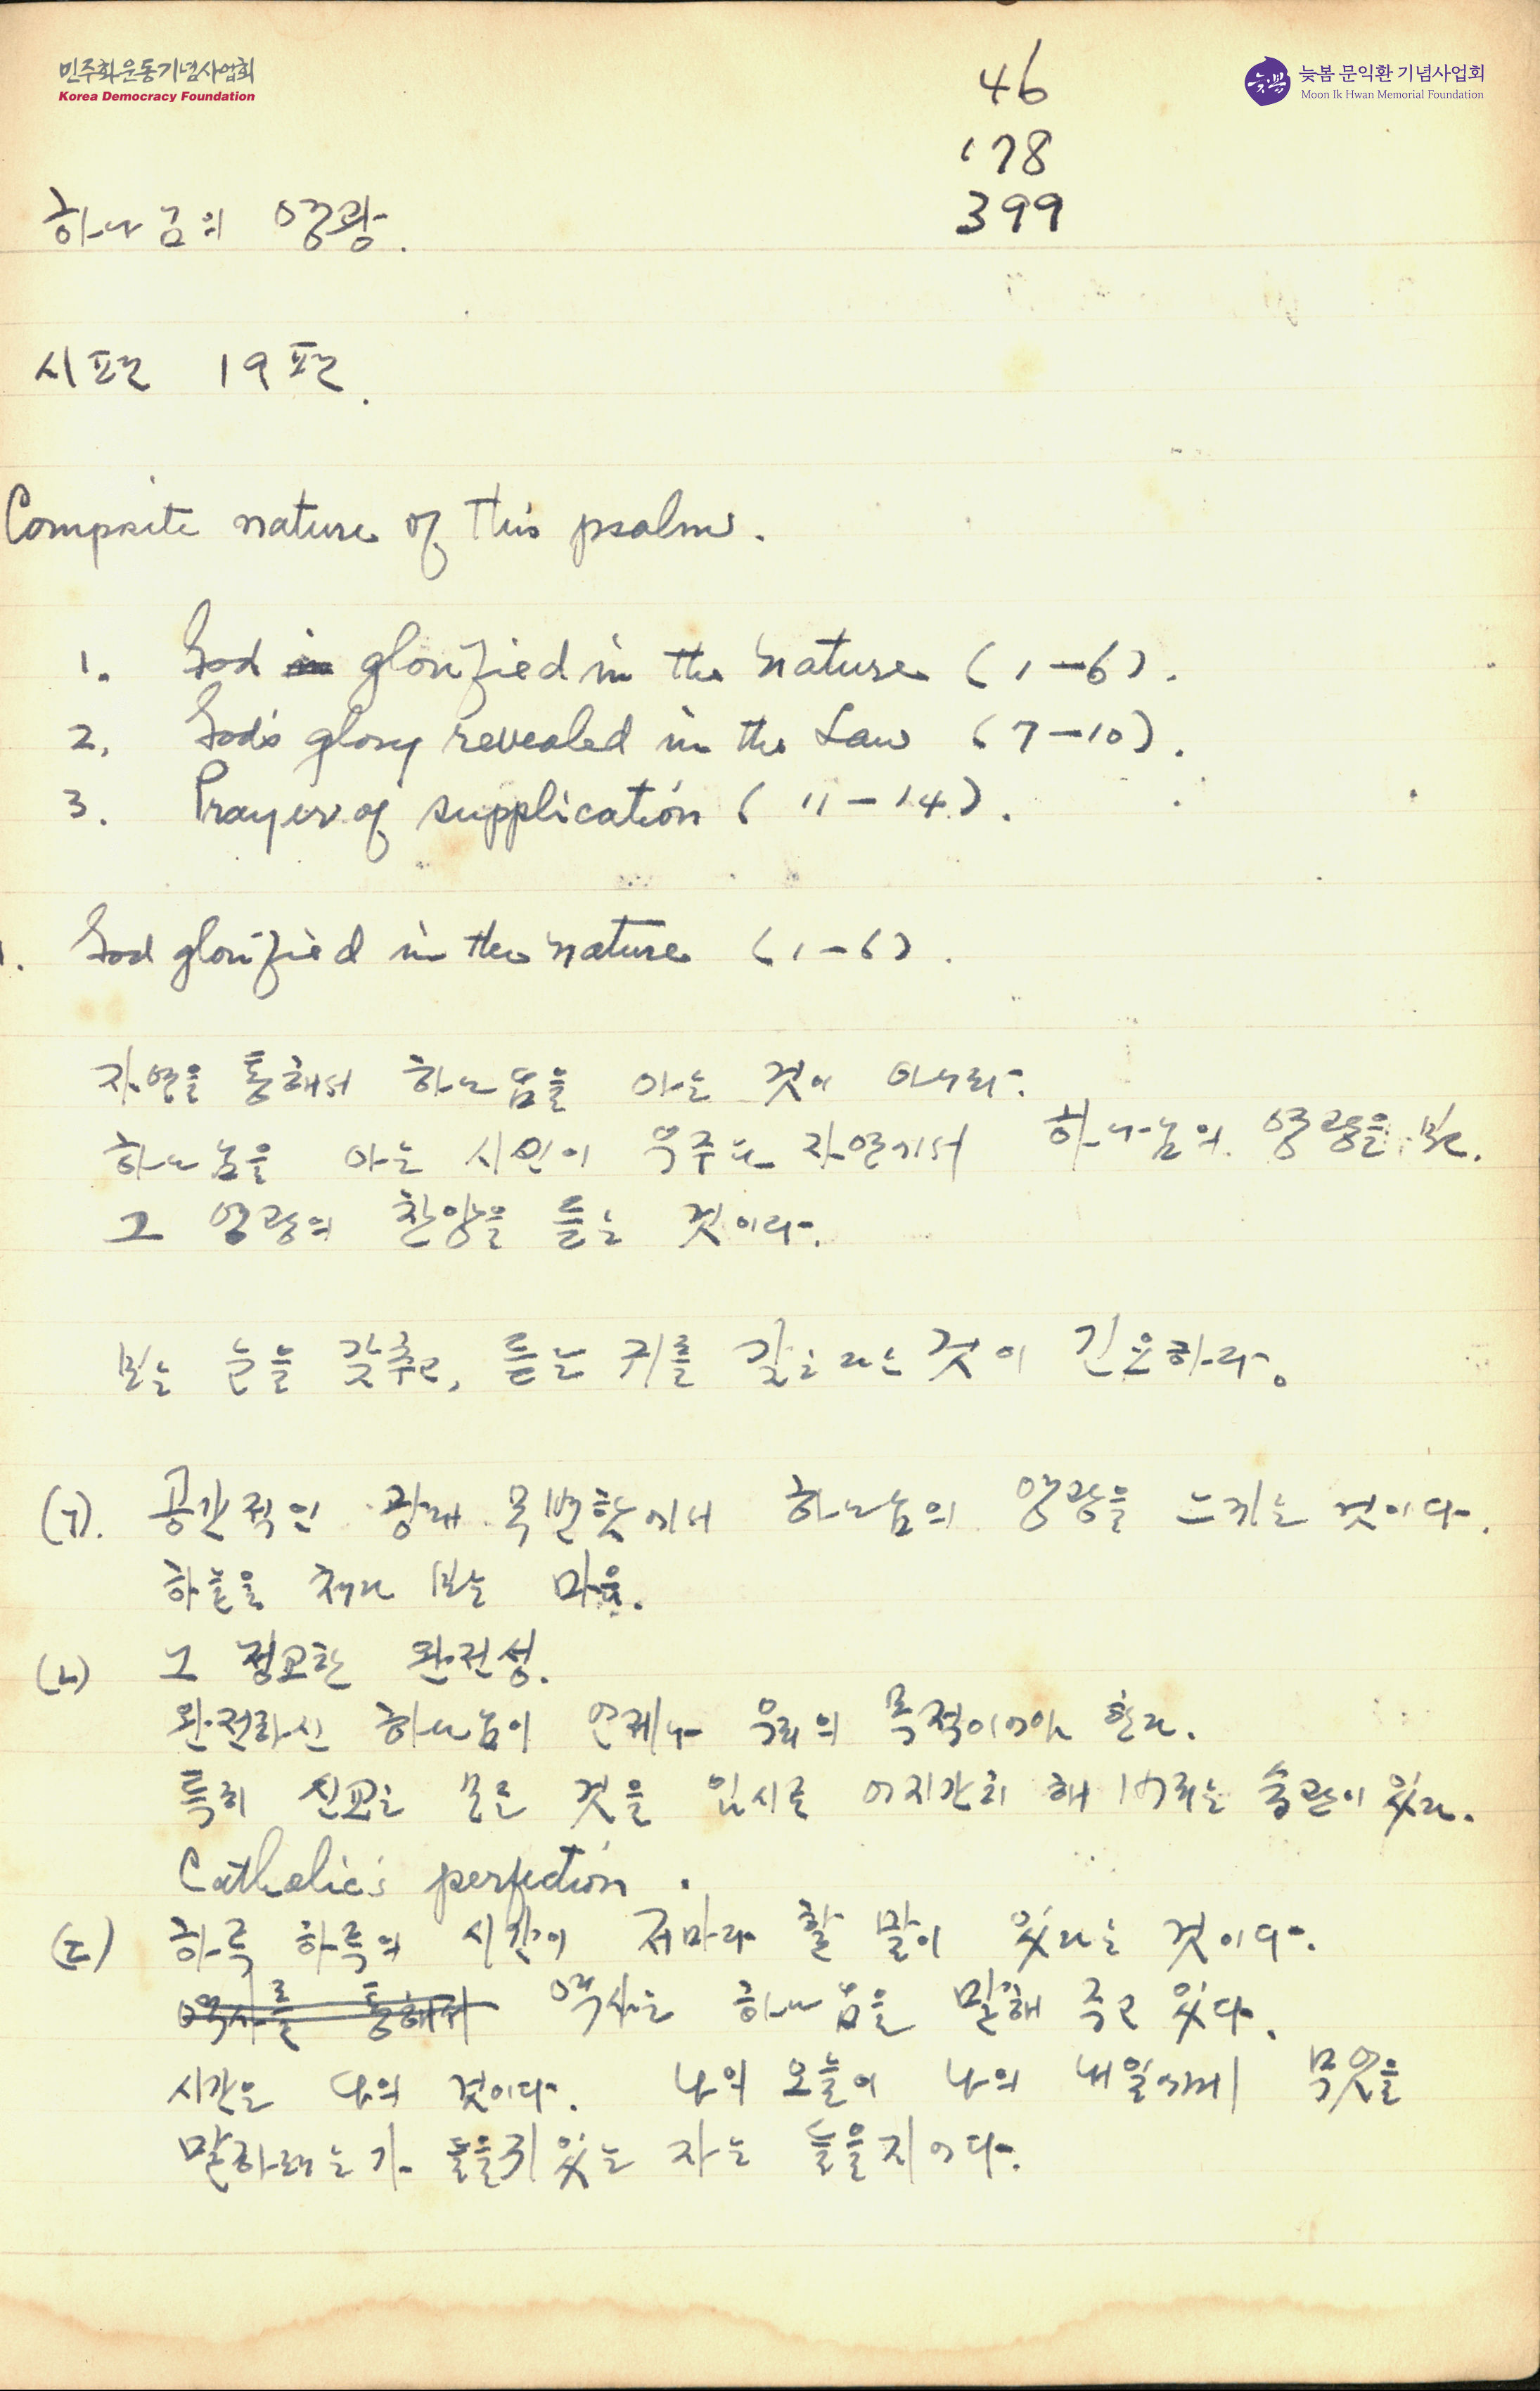 민주화운동기념사업회
Korea Democracy Foundation
늦봄 문익환 기념사업회
Moon Ik Hwan Memorial Foundation
46
178
399
하나님의 영광.
시편 19편.
Composite nature of this psalm.
1. God in glorified in the nature (1-6).
2. God's glory revealed in the Law (7-10).
3. Prayer of supplication (11-14).
1. God glorified in the nature (1-6).
자연을 통해서 하나님을 아는 것이 아니라.
하나님을 아는 시인이 우주 자연에서 하나님의 영광을 보고.
그 영광의 찬양을 듣는 것이다.
보는 눈을 갖추고, 듣는 귀를 갖는다는 것이 긴요하다.
(ㄱ). 공간적인 광대 에서 하나님의 영광을 느끼는 것이다.
하늘을 쳐다 보는 마음.
(ㄴ) 그 정교한 완전성.
완전하신 하나님이 언제나 우리의 목적이어야 한다.
특히 신교는 모든 것을 임시로 어지간히 해 버리는 습관이 있다.
Catholic's perfection.
(ㄷ) 하루 하루의 시간이 저마다 할 말이 있다는 것이다.
역사를 통해서 역사는 하나님을 말해 주고 있다.
시간은 나의 것이다. 나의 오늘이 나의 내일에게 무엇을
말하려는가 들을 귀 있는 자는 들을지어다.